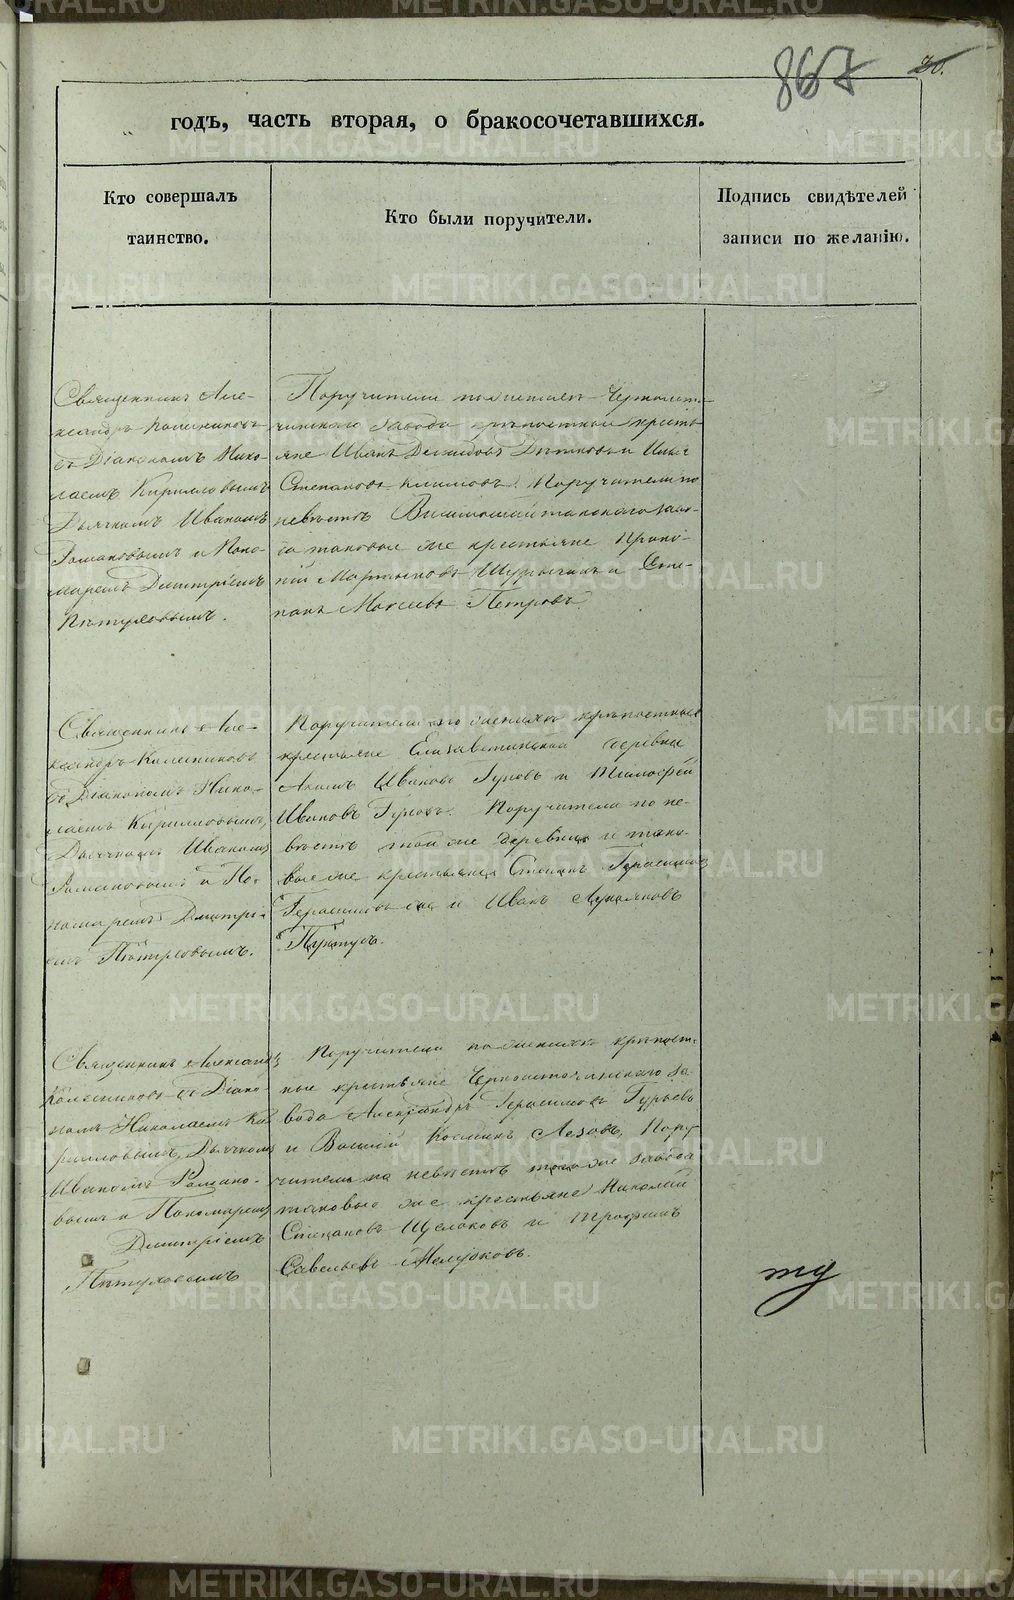 867
20.
годъ, часть вторая, о бракосочетавшихся.
Кто совершалъ
таинство.
Кто были поручители.
Подпись свидѣтелей
записи по желанію.
Священникъ Але-
ксандръ Колесниковъ
съ Діакономъ Нико-
лаемъ Кирилловымъ
Дьячкомъ Иваномъ
Романовымъ и Поно-
маремъ Димитріемъ
Пѣтуховымъ.
Поручители по женихѣ Черноисто-
чинскаго завода крѣпостные кресть-
яне Иванъ Демидовъ и Илья
Степановъ Климовъ. Поручители по
невѣстѣ Висимошайтанскаго заво-
да таковые же крестьяне Проко-
пій Мартыновъ и Сте-
панъ Моисеевъ Петровъ.
Священникъ Але-
ксандръ Колесниковъ
съ Діакономъ Нико-
лаемъ Кирилловымъ,
Дьячкомъ Иваномъ
Романовымъ и По-
номаремъ Димитрі-
емъ Пѣтуховымъ.
Поручители по женихѣ крѣпостные
крестьяне Елизаветинской деревни
Иванов и Тимофей
Ивановъ Поручители по не-
вѣстѣ той же деревни и тако-
вые же крестьяне Степанъ Герасимовъ
Герасимовъ же и Иванъ Лукьяновъ
Пунтусъ.
Священникъ Александръ
Колесниковъ съ Діако-
номъ Николаемъ Ки-
рилловымъ, Дьячкомъ
Иваномъ Романо-
вымъ и Пономаремъ
Димитріемъ
Пѣтуховымъ
Поручители по женихѣ крѣпост-
ные крестьяне Черноисточинскаго за-
вода Александръ Герасимовъ Гурьевъ
и Василій Козминъ Лезовъ, Пору-
чители по невѣстѣ того же завода
таковые же крестьяне Николай
Степановъ Щелоковъ и Трофимъ
Савельевъ Желубковъ.
METRIKI.GASO-URAL.RU